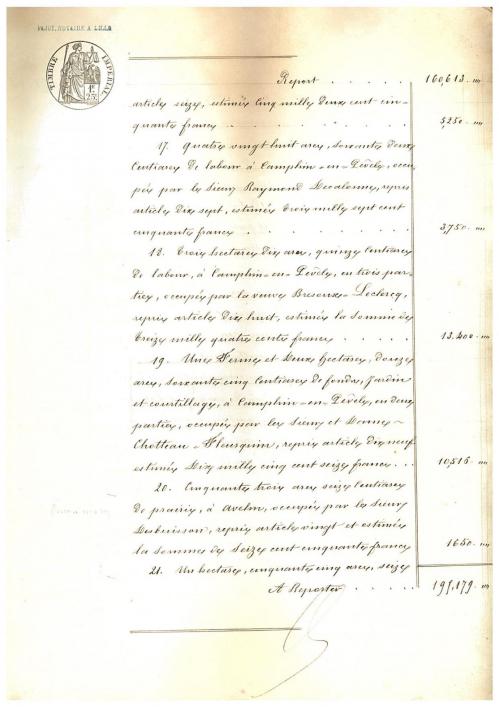 PAJOT, NOTAIRE A LILLE
TIMBRE IMPERIAL
Report . . . . . 160,613. "
article seize, estimés cinq mille deux cent cin-
quante francs . . . . . 5,250 "
17. Quatre vingt huit ares, soixante deux
centiares de labour à Camphin-en-Pévèle, occu-
pés par le sieur Raymond Decalonne, repris
article dix sept, estimés trois mille sept cent
cinquante francs . . . . . 3,750 "
18. Trois hectares dix ares, quinze centiares
de labour, à Camphin-en-Pévèle, en trois par-
ties, occupés par la veuve Bresous-Leclercq,
repris article dix huit, estimés la somme de
treize mille quatre cents francs . . . . . 13.400 "
19. Une Ferme et deux hectares, douze
ares, soixante cinq centiares de fonds, jardin
et courtillage, à Camphin-en-Pévèle, en deux
parties, occupés par les sieur et Dame
Chotteau-Fleurquin, repris article dix neuf
estimés dix mille cinq cent seize francs . . 10,516 "
20. Cinquante trois ares seize centiares
de prairie, à Avelin, occupés par le sieur
Desbuisson, repris article vingt et estimés
la somme de seize cent cinquante francs 1650 "
21. Un hectare, cinquante cinq ares, seize
A Reporter . . . . 195,179. "